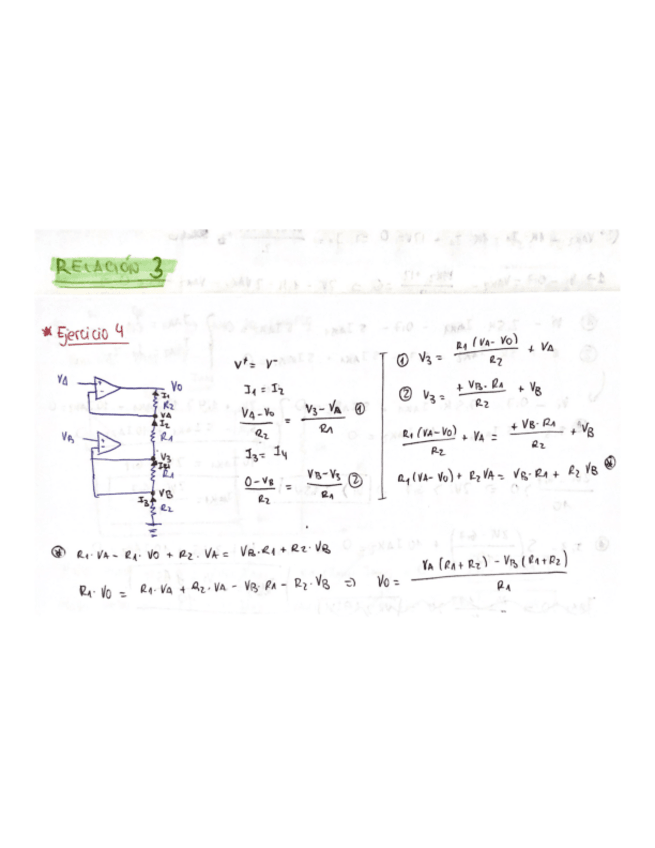 RELACIÓN 3
* Ejercicio 4
VA
VO
I1
R2
VA
I2
R1
VB
V3
I4
R1
VB
I3
R2
V+ = V-
I1 = I2
(VA-VO)/R2 = (V3-VA)/R1 ①
I3 = I4
(0-VB)/R2 = (VB-V3)/R1 ②
① V3 = R1(VA-VO)/R2 + VA
② V3 = +VB·R1/R2 + VB
R1(VA-VO)/R2 + VA = +VB·R1/R2 + VB
R1(VA-VO) + R2VA = VB·R1 + R2VB ⊛
⊛ R1·VA - R1·VO + R2·VA = VB·R1 + R2·VB
R1·VO = R1·VA + R2·VA - VB·R1 - R2·VB ⇒ VO = VA(R1+R2) - VB(R1+R2)/R1